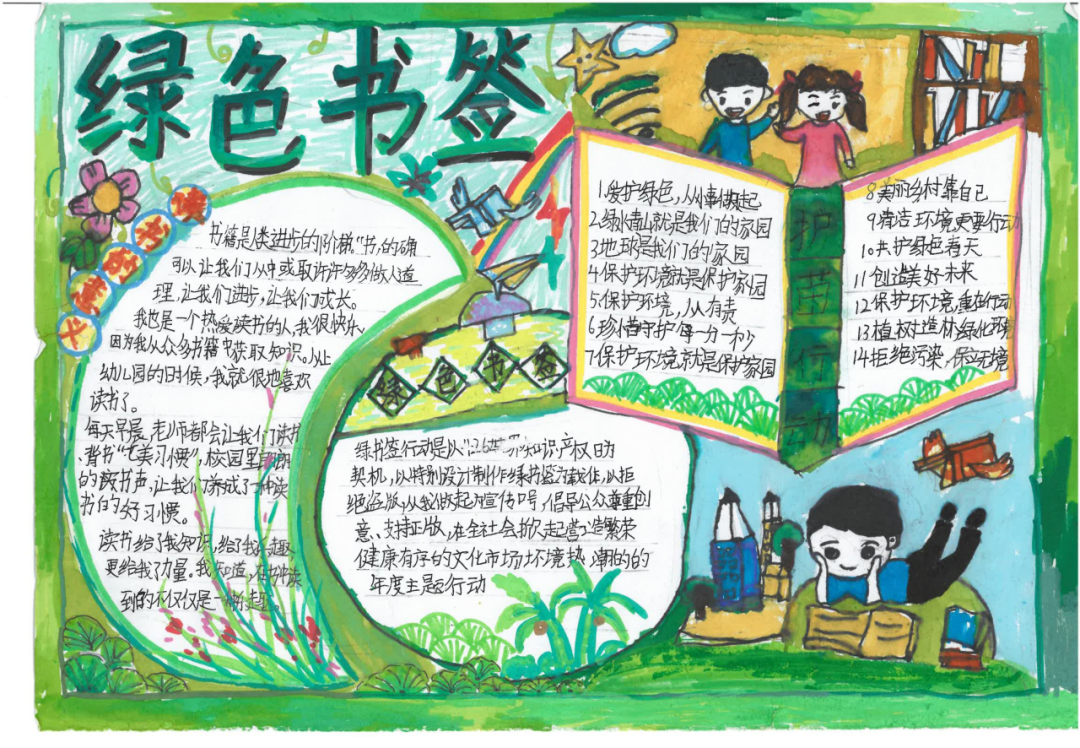 绿色书签
书籍是人类进步的阶梯"书,的确
可以让我们从中或取许许多多做人道
理,让我们进步,让我们成长。
我也是一个热爱读书的人,我很快乐
因为我从众多书籍中获取知识。从上
幼儿园的时候,我就很地喜欢
读书了。
每天早晨,老师都会让我们读书
、背书"七美习惯",校园里
的读书声,让我们养成了一种读
书的好习惯。
读书给了我知识,给了我乐趣
更给我了力量。我知道,在书中读
到的不仅仅是一种乐趣。
绿色书签
绿书签行动是以 世界知识产权日为
契机,以特别设计制作绿书签为载体,以拒
绝盗版,从我做起为宣传口号,倡导公众尊重创
意、支持正版,在全社会掀起营造繁荣
健康有序的文化市场环境热潮的的
年度主题行动
1.爱护绿色,从情做起
2.绿水青山就是我们的家园
3.地球是我们的家园
4.保护环境就是保护家园
5.保护环境,人人有责
6.珍惜守护每一分一秒
7.保护环境就是保护家园
护苗行动
8.美丽乡村靠自己
9.清洁环境更要行动
10.共护绿色春天
11.创造美好未来
12.保护环境,重在行动
13.植树造林绿化环境
14.拒绝污染,保环境